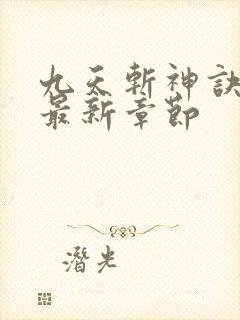 九天斬神訣
最新章節
潛光